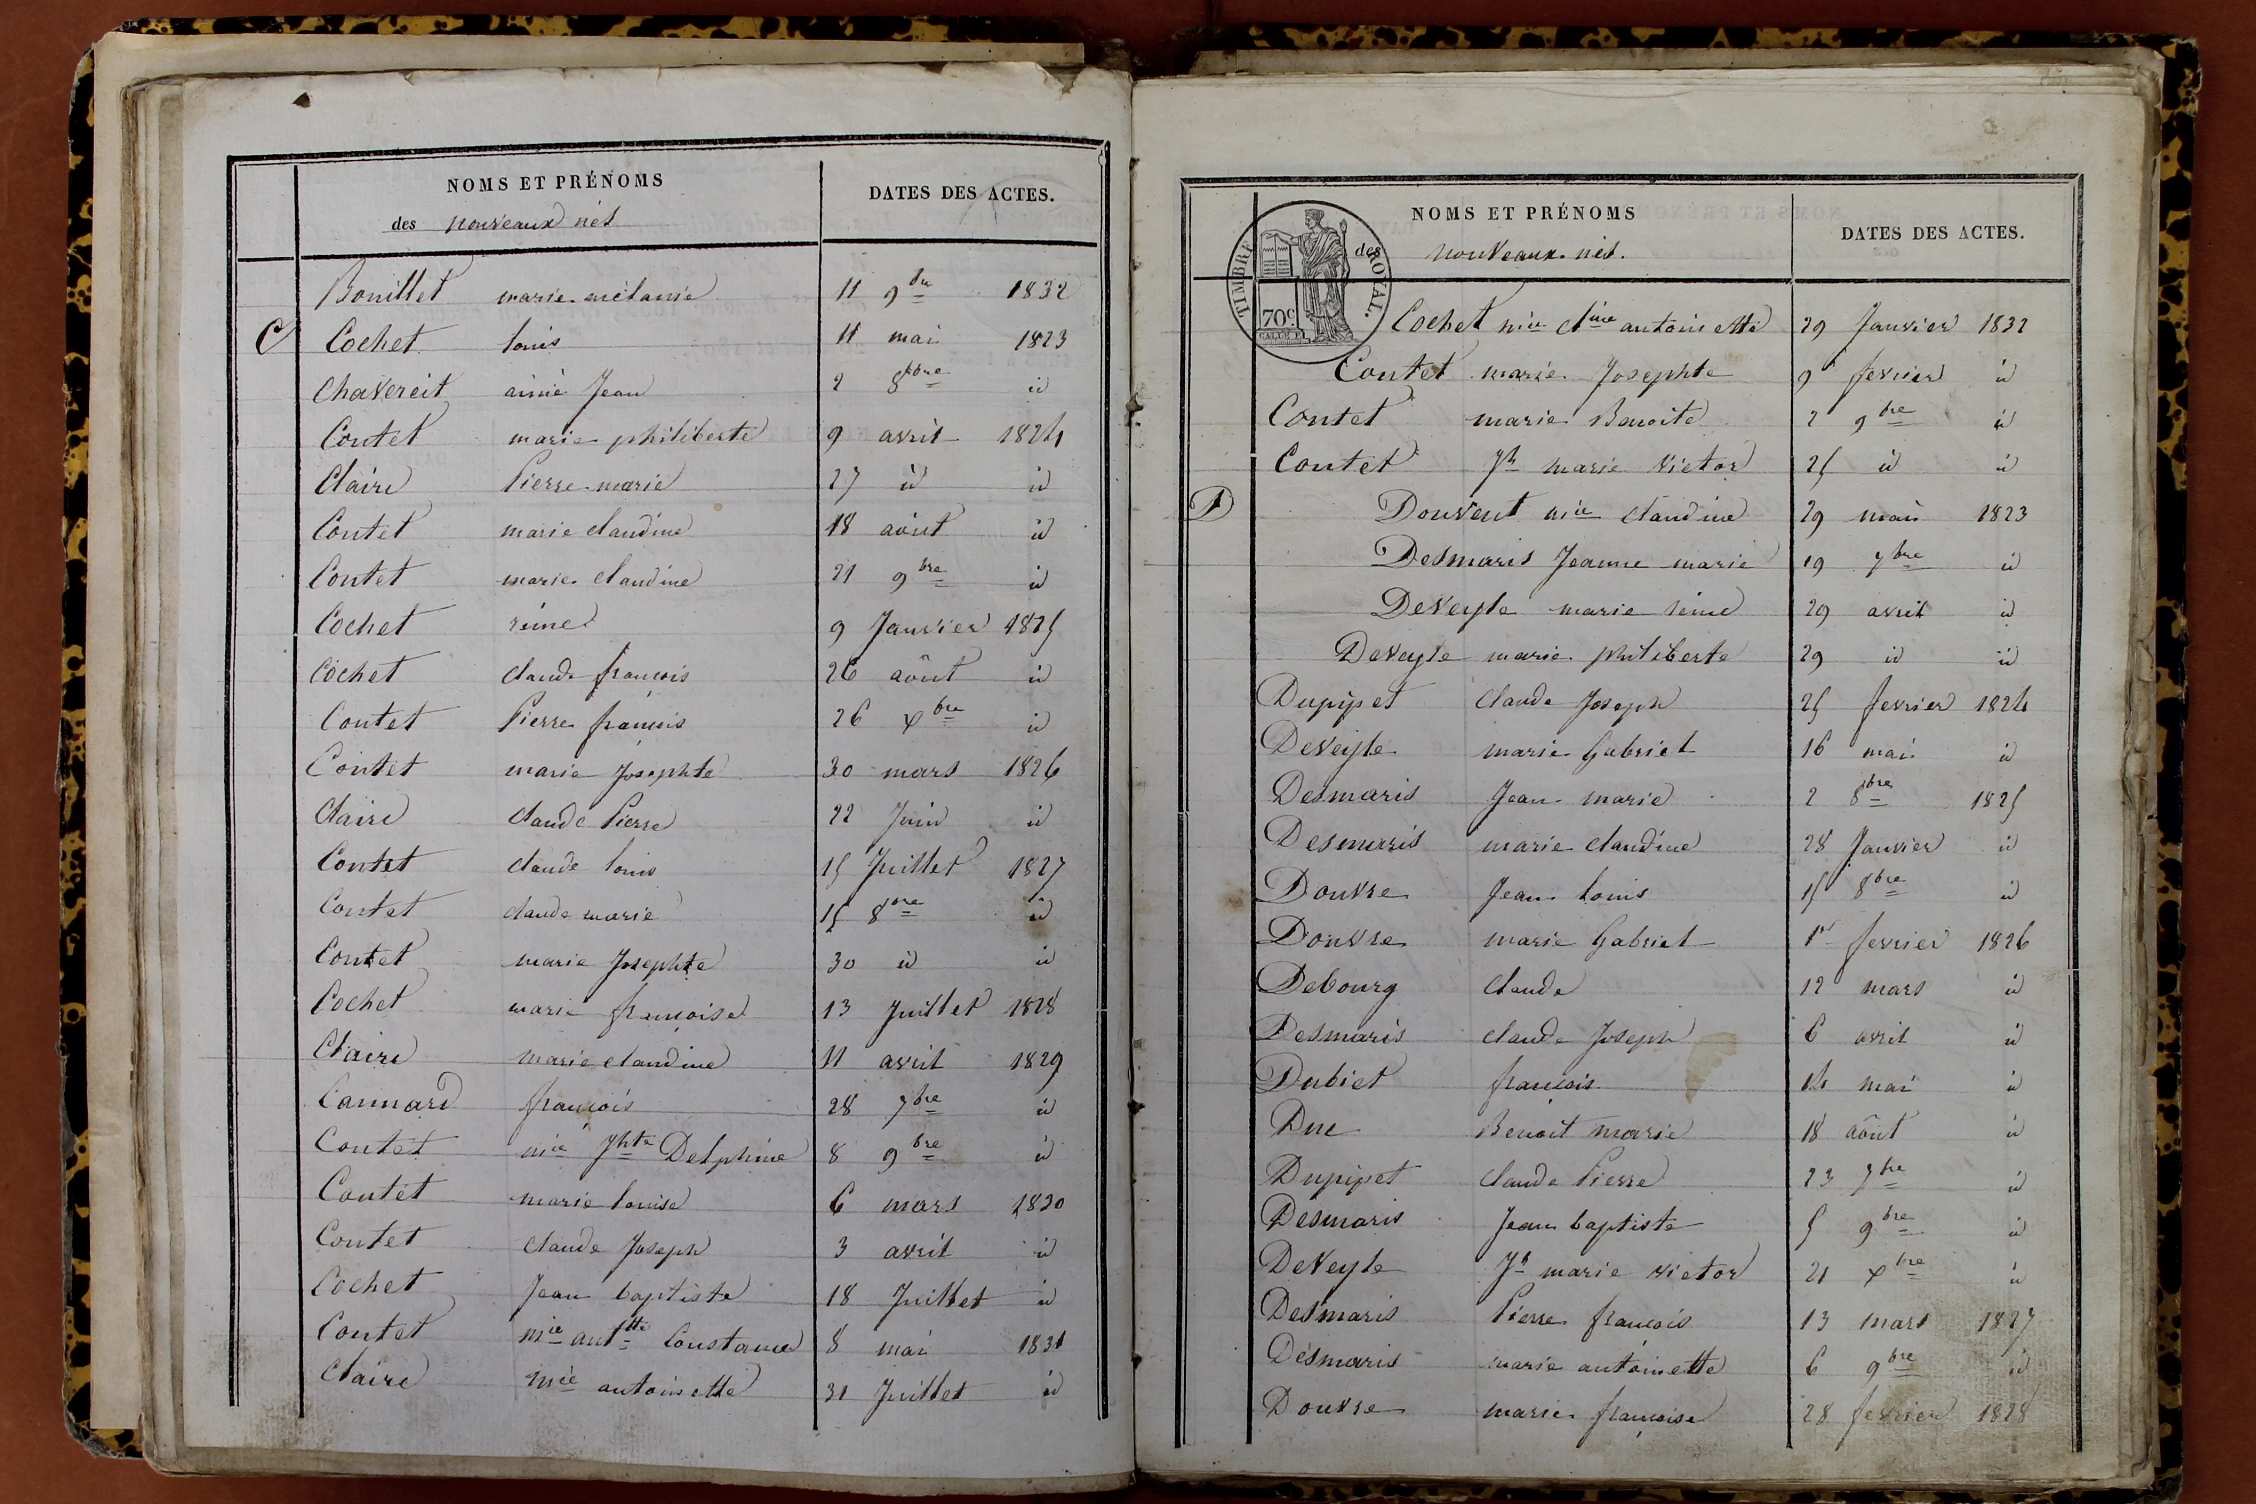 NOMS ET PRÉNOMS
DATES DES ACTES.
des nouveaux nés
Bouillet marie mélanie 11 9bre 1832
C Cochet louis 11 mai 1823
Chavereit aimé Jean 2 8bre id
Contet marie philiberte 9 avril 1824
Claire Pierre marie 27 id id
Contet marie claudine 18 août id
Contet marie claudine 21 9bre id
Cochet reine 9 Janvier 1825
Cochet claude françois 26 août id
Contet Pierre françois 26 xbre id
Contet marie Josephte 30 mars 1826
Claire claude Pierre 22 Juin id
Contet claude louis 15 Juillet 1827
Contet claude marie 15 8bre id
Contet marie Josephte 30 id id
Cochet marie françoise 13 Juillet 1828
Claire marie claudine 11 avril 1829
Cannard françois 28 7bre id
Contet mie Jhte Delphine 8 9bre id
Contet marie louise 6 mars 1830
Contet claude Joseph 3 avril id
Cochet Jean baptiste 18 Juillet id
Contet mie anttte Constance 8 mai 1831
Claire mie antoinette 31 Juillet id
NOMS ET PRÉNOMS
DATES DES ACTES.
des nouveaux nés.
TIMBRE ROYAL.
70c
Cochet mie Cdine antoinette 29 Janvier 1832
Contet marie Josephte 9 fevrier id
Contet marie Benoite 2 9bre id
Contet Jh marie victor 25 id id
D Douvent mie claudine 29 mai 1823
Desmaris Jeanne marie 19 7bre id
DeVeyle marie reine 29 avril id
DeVeyle marie philiberte 29 id id
Dupipet claude Joseph 25 fevrier 1824
DeVeyle marie Gabriel 16 mai id
Desmaris Jean marie 2 8bre 1825
Desmaris marie claudine 28 Janvier id
Douvre Jean louis 15 8bre id
Douvre marie Gabriel 1er fevrier 1826
Debourg claude 12 mars id
Desmaris claude Joseph 6 avril id
Dubiet françois 14 mai id
Duc Benoit marie 18 août id
Dupipet claude Pierre 23 7bre id
Desmaris Jean baptiste 5 9bre id
DeVeyle Jh marie victor 21 xbre id
Desmaris Pierre françois 13 mars 1827
Desmaris marie antoinette 6 9bre id
Douvre marie françoise 28 fevrier 1828